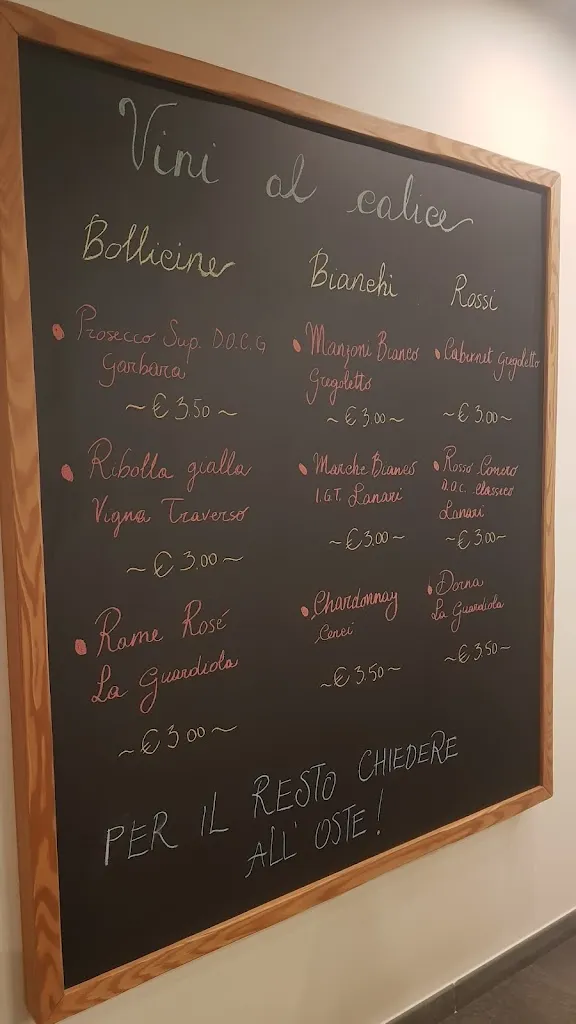 Vini al calice
Bollicine
Prosecco Sup. D.O.C.G
Garbara
~ € 3.50 ~
Ribolla gialla
Vigna Traverso
~ € 3.00 ~
Rame Rosé
La Guardiola
~ € 3.00 ~
Bianchi
Manzoni Bianco
Gregoletto
~ € 3.00 ~
Marche Bianco
I.G.T. Lanari
~ € 3.00 ~
Chardonnay
~ € 3.50 ~
Rossi
Cabernet Gregoletto
~ € 3.00 ~
Rosso Conero
D.O.C. Classico
Lanari
~ € 3.00 ~
Dorna
La Guardiola
~ € 3.50 ~
PER IL RESTO CHIEDERE
ALL' OSTE!